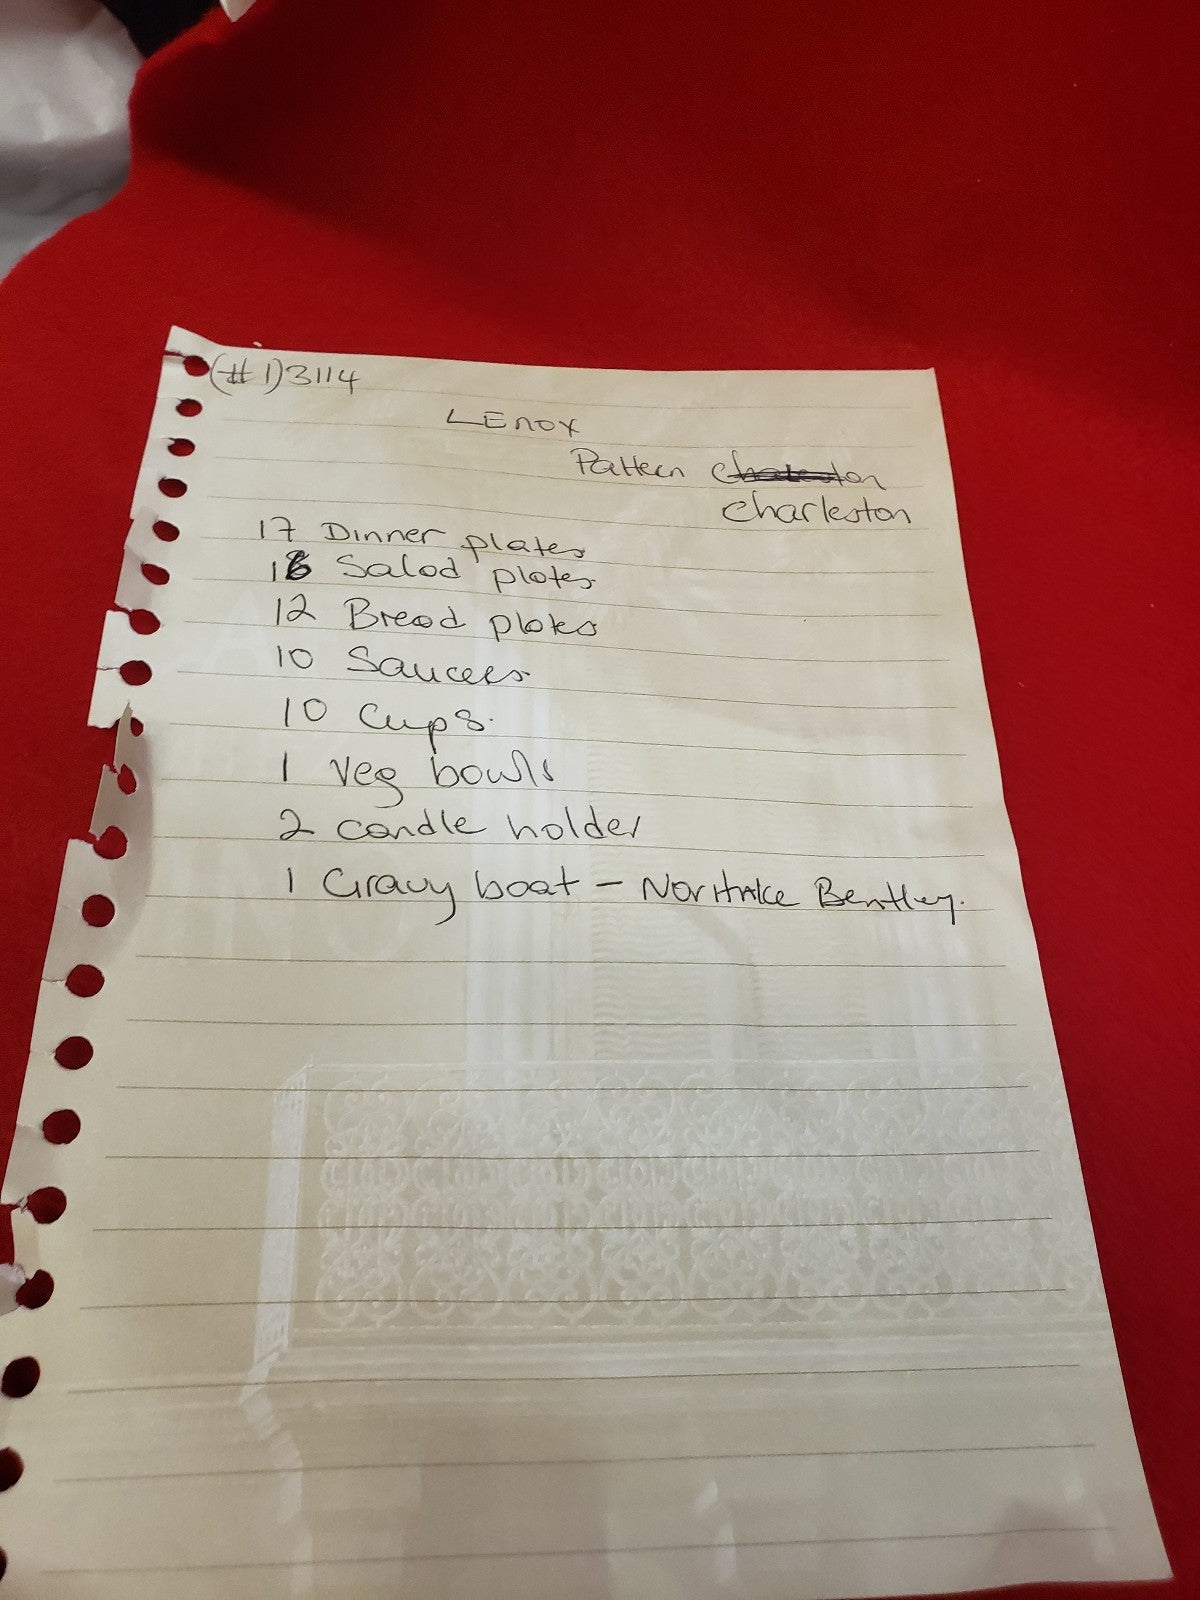 (#1)3114
LENOX
Pattern
Charleston
17 Dinner plates
16 Salad plates
12 Bread plates
10 Saucers
10 Cups.
1 Veg bowls
2 candle holder
1 Gravy boat – Noritake Bentley.